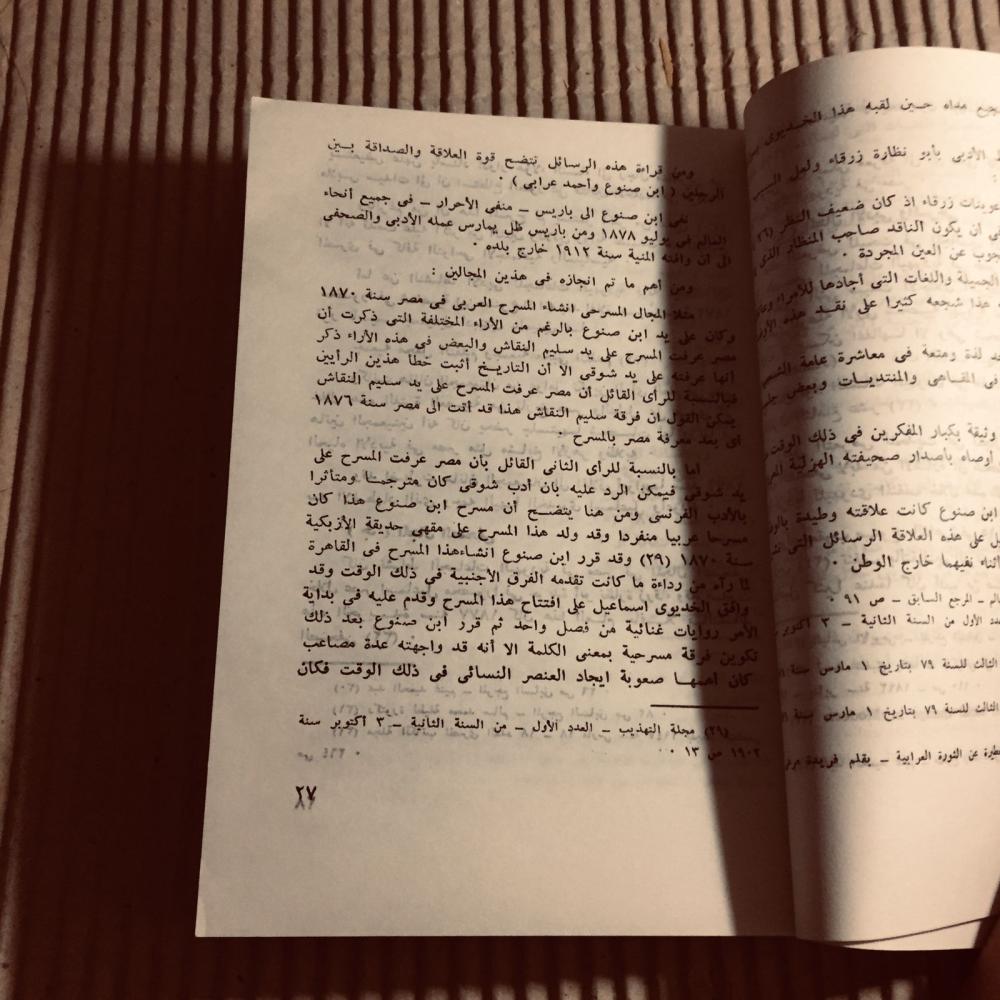 جميع مداه حين لقبه هذا الخديوى
الأدبى بأبو نظارة زرقاء ولعل
عوينات زرقاء اذ كان ضعيف النظر (٢٦
فى أن يكون الناقد صاحب المنظار الذى
جوب عن العين المجردة .
الجميلة واللغات التى أجادها للأمراء
هذا شجعه كثيرا على نقد هذه
لذة ومتعة فى معاشرة عامة
فى المقاهى والمنتديات وبعض
وثيقة بكبار المفكرين فى ذلك الوقت
أوصاه باصدار صحيفته الهزلية
ابن صنوع كانت علاقته وطيدة
على هذه العلاقة الرسائل التى
اثناء نفيهما خارج الوطن .
ـ المرجع السابق ـ ص ٩١ .
الأول من السنة الثانية ـ ٣ أكتوبر
الثالث للسنة ٧٩ بتاريخ ١ مارس سنة
الثالث للسنة ٧٩ بتاريخ ١ مارس سنة
عن الثورة العرابية ـ بقلم فريدة
ومن قراءة هذه الرسائل تتضح قوة العلاقة والصداقة بين
الرجلين ( ابن صنوع وأحمد عرابى ) .
نفى ابن صنوع الى باريس ـ منفى الأحرار ـ فى جميع أنحاء
العالم فى يوليو ١٨٧٨ ومن باريس ظل يمارس عمله الأدبى والصحفى
الى أن وافته المنية سنة ١٩١٢ خارج بلده .
ومن أهم ما تم انجازه فى هذين المجالين :
مثلا المجال المسرحى انشاء المسرح العربى فى مصر سنة ١٨٧٠
وكان على يد ابن صنوع بالرغم من الأراء المختلفة التى ذكرت أن
مصر عرفت المسرح على يد سليم النقاش والبعض فى هذه الأراء ذكر
أنها عرفته على يد شوقى الا أن التاريخ أثبت خطأ هذين الرأيين
فبالنسبة للرأى القائل أن مصر عرفت المسرح على يد سليم النقاش
يمكن القول ان فرقة سليم النقاش هذا قد أتت الى مصر سنة ١٨٧٦
أى بعد معرفة مصر بالمسرح .
اما بالنسبة للرأى الثانى القائل بأن مصر عرفت المسرح على
يد شوقى فيمكن الرد عليه بان أدب شوقى كان مترجما ومتأثرا
بالأدب الفرنسى ومن هنا يتضح أن مسرح ابن صنوع هذا كان
مسرحا عربيا منفردا وقد ولد هذا المسرح على مقهى حديقة الأزبكية
سنة ١٨٧٠ (٢٩) وقد قرر ابن صنوع انشاءهذا المسرح فى القاهرة
لما رآه من رداءة ما كانت تقدمه الفرق الأجنبية فى ذلك الوقت وقد
وافق الخديوى اسماعيل على افتتاح هذا المسرح وقدم عليه فى بداية
الأمر روايات غنائية من فصل واحد ثم قرر ابن صنوع بعد ذلك
تكوين فرقة مسرحية بمعنى الكلمة الا أنه قد واجهته عدة مصاعب
كان أهمها صعوبة ايجاد العنصر النسائى فى ذلك الوقت فكان
(٢٩) مجلة التهذيب ـ العدد الأول ـ من السنة الثانية ـ ٣ أكتوبر سنة
١٩٠٢ ص ١٣ .
٢٧